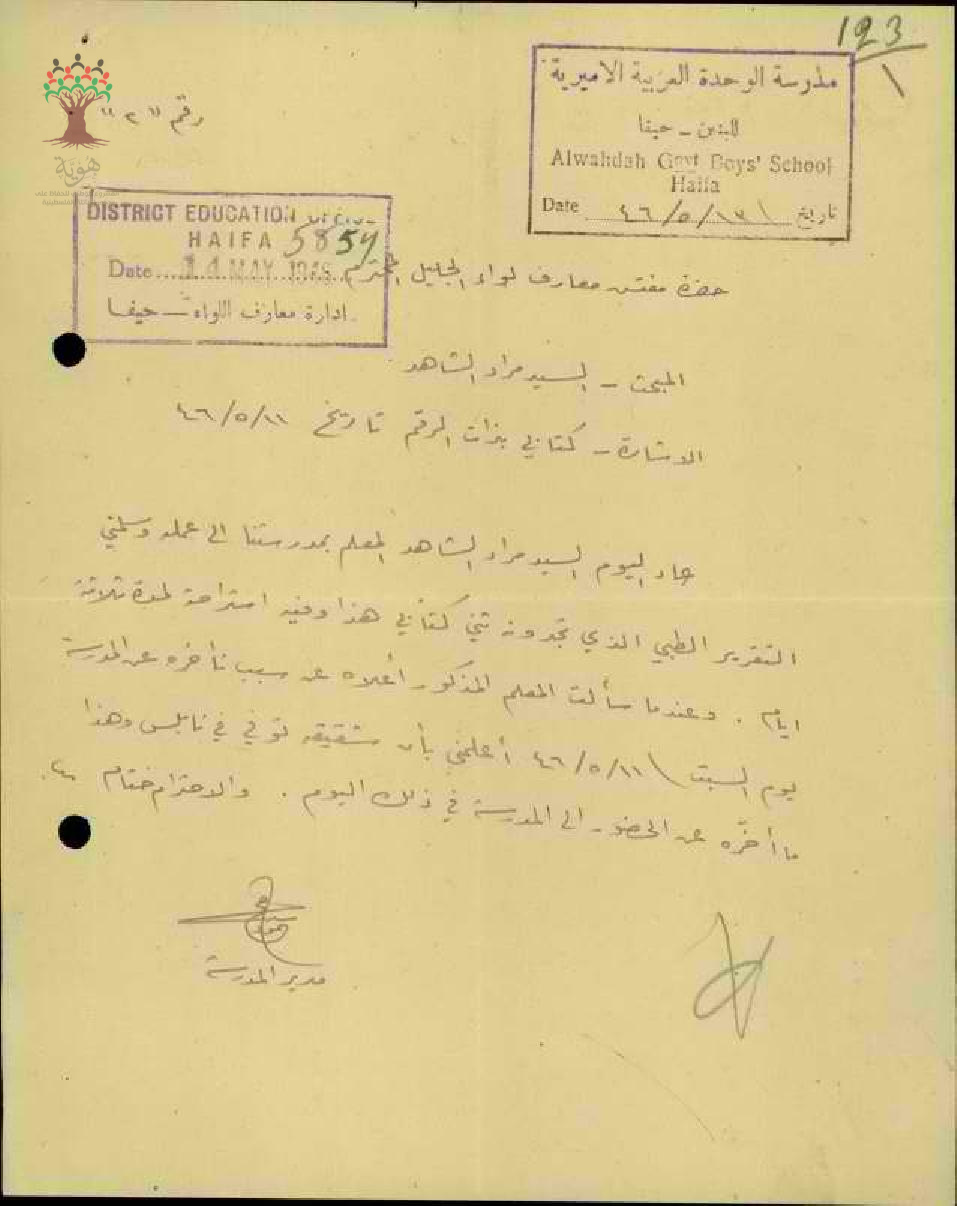 123
١
مدرسة الوحدة العربية الاميرية
للبنين - حيفا
Alwahdah Govt Boys' School
Haifa
Date ٤٦/٥/١٣ تاريخ
رقم "٢"
هوية
DISTRICT EDUCATION
HAIFA 5857
Date 14 MAY 1946
ادارة معارف اللواء - حيفا
حضرة مفتش معارف لواء الجليل المحترم
المبحث - السيد مراد الشاهد
الاشارة - كتابي بذات الرقم تاريخ ٤٦/٥/١١
عاد اليوم السيد مراد الشاهد المعلم بمدرستنا الى عمله وسلمني
التقرير الطبي الذي تجدونه ثني كتابي هذا وفيه استراحة لمدة ثلاثة
ايام . وعندما سألت المعلم المذكور أعلاه عن سبب تأخره عن المدرسة
يوم السبت ٤٦/٥/١١ أعلمني بأن شقيقه توفي في نابلس وهذا
ما أخره عن الحضور الى المدرسة في ذلك اليوم . والاحترام ختام
مدير المدرسة